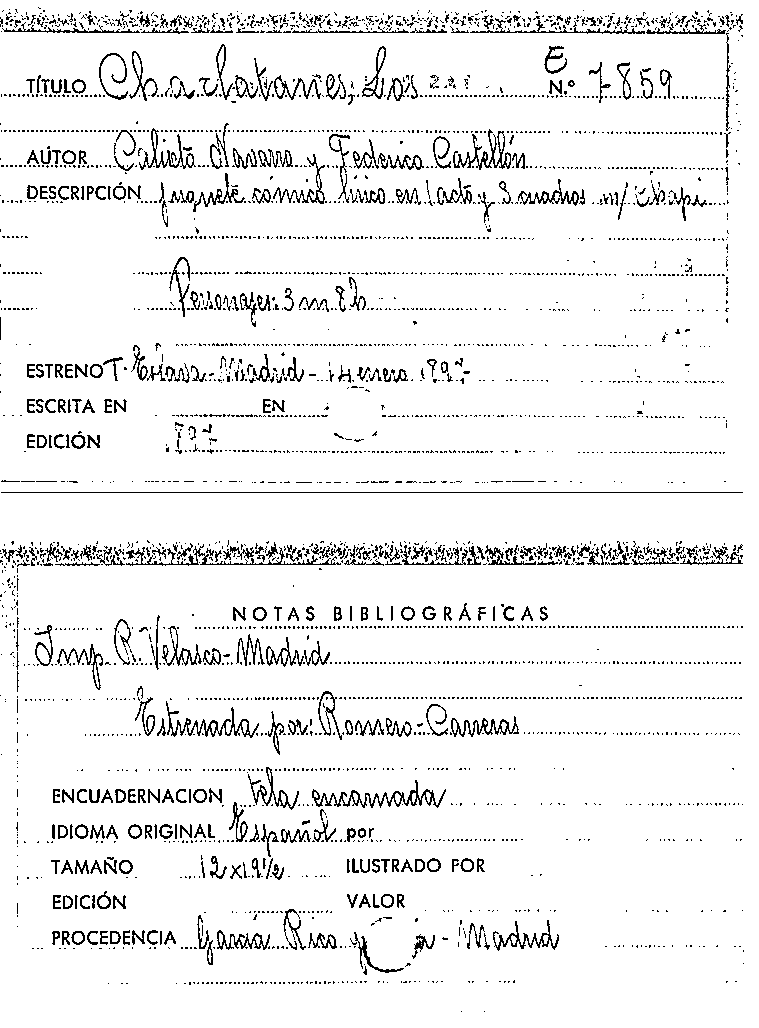 E
TÍTULO Charlatanes; Los N.º 7859
AUTOR Calixto Navarro y Federico Castellón
DESCRIPCIÓN Juguete cómico lírico en 1 acto y 3 cuadros m/ Chapí
Personajes: 3 m 8 h
ESTRENO T. Eslava - Madrid - 14 enero 1897
ESCRITA EN EN
EDICIÓN 1897
NOTAS BIBLIOGRÁFICAS
Imp. R. Velasco - Madrid
Estrenada por: Romero - Carreras
ENCUADERNACION tela encarnada
IDIOMA ORIGINAL Español por
TAMAÑO 12 x 19 1/2 ILUSTRADO POR
EDICIÓN VALOR
PROCEDENCIA García Rico y - Madrid